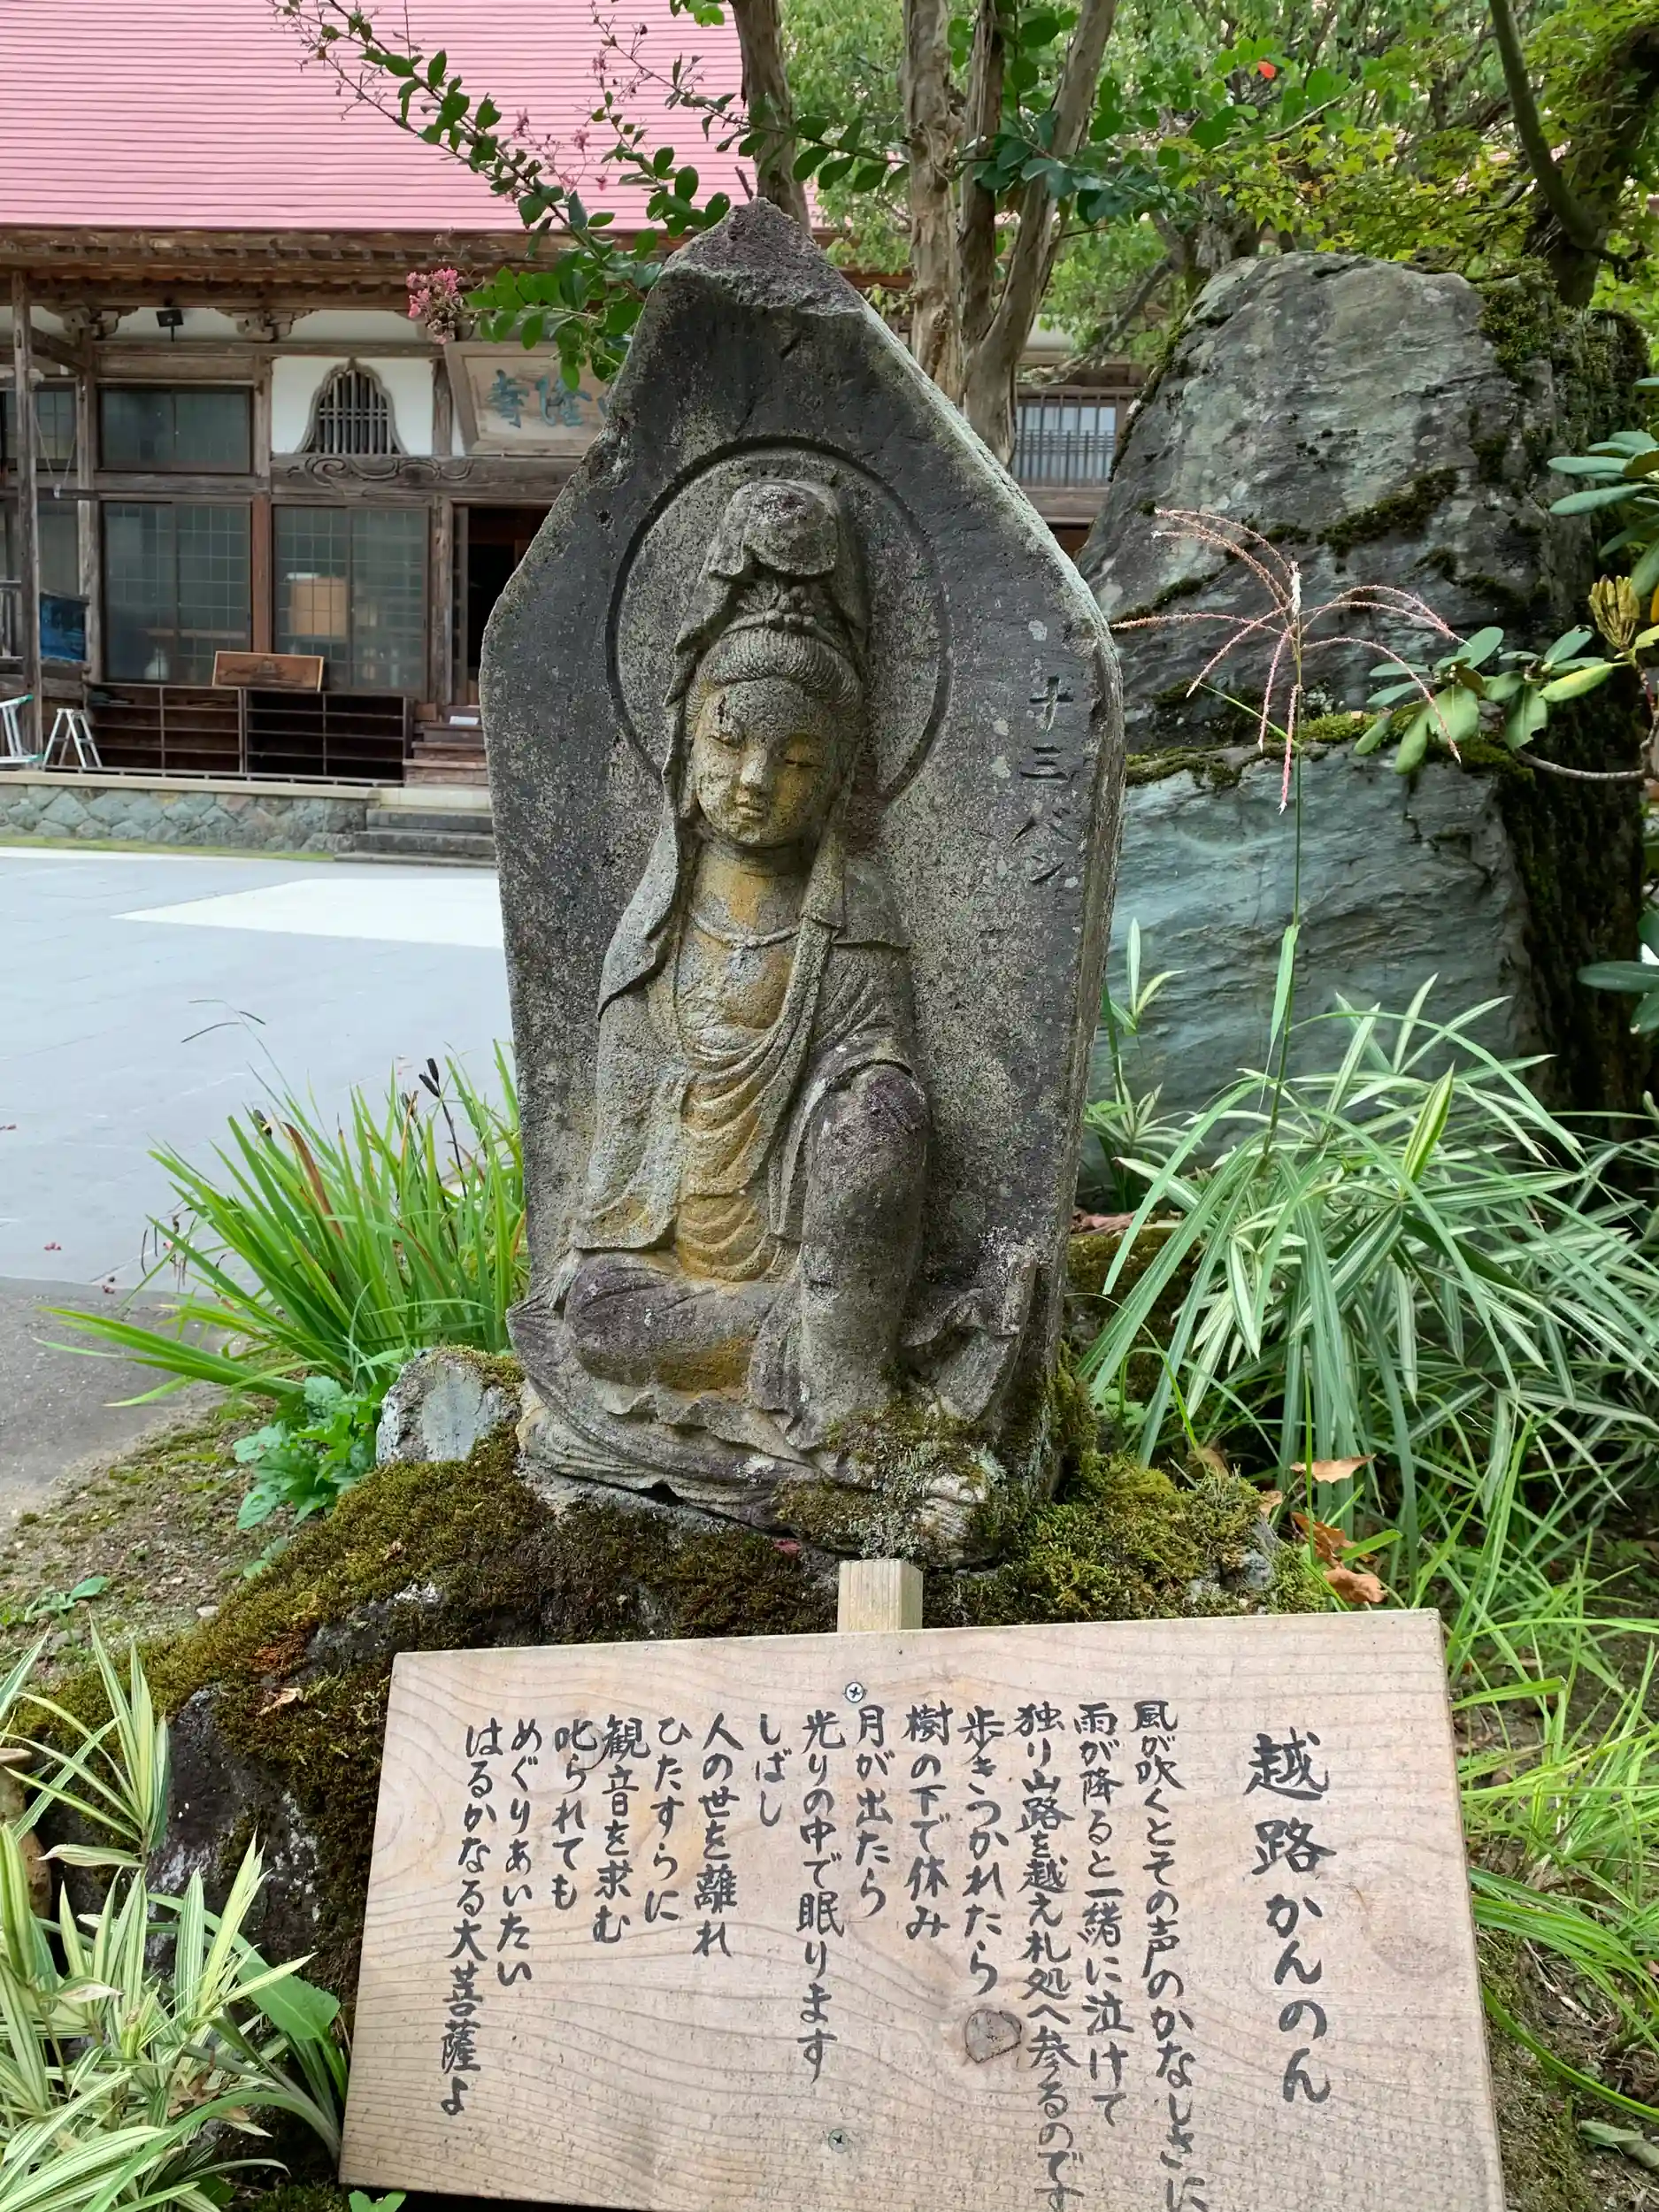 隆寺
十三バン
越路かんのん
風が吹くとその声のかなしさに
雨が降ると一緒に泣けて
独り山路を越え札処へ参るのです
歩きつかれたら
樹の下で休み
月が出たら
光りの中で眠ります
しばし
人の世を離れ
ひたすらに
観音を求む
叱られても
めぐりあいたい
はるかなる大菩薩よ